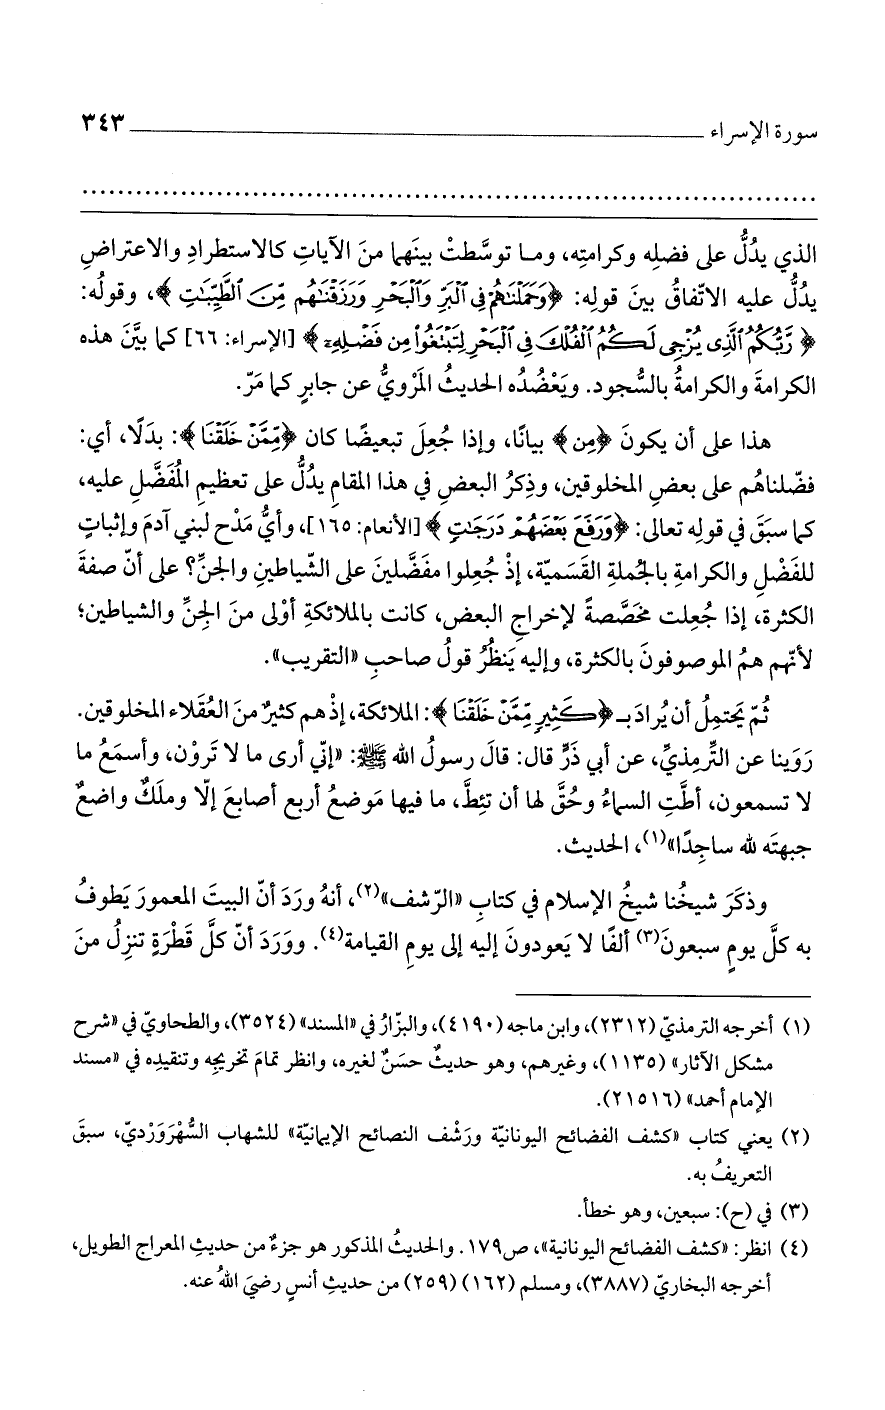 سورة الإسراء ــــــــــــــــــــ ٣٤٣
الذي يدُلُّ على فضلِه وكرامتِه، وما توسَّطتْ بينَهما منَ الآياتِ كالاستطرادِ والاعتراضِ
يدُلُّ عليه الاتّفاقُ بينَ قولِه: ﴿وَحَمَلْنَاهُمْ فِي ٱلْبَرِّ وَٱلْبَحْرِ وَرَزَقْنَاهُم مِّنَ ٱلطَّيِّبَاتِ﴾، وقولُه:
﴿رَّبُّكُمُ ٱلَّذِى يُزْجِى لَكُمُ ٱلْفُلْكَ فِى ٱلْبَحْرِ لِتَبْتَغُواْ مِن فَضْلِهِۦ﴾ [الإسراء: ٦٦] كما بيَّنَ هذه
الكرامةَ والكرامةُ بالسُّجود. ويَعْضُدُه الحديثُ المَرْويُّ عن جابرٍ كما مَرّ.
هذا على أن يكونَ ﴿مِن﴾ بيانًا، وإذا جُعِلَ تبعيضًا كان ﴿مِّمَّنْ خَلَقْنَا﴾: بدَلًا، أي:
فضّلناهُم على بعضِ المخلوقين، وذِكرُ البعضِ في هذا المقامِ يدُلُّ على تعظيمِ المُفَضَّلِ عليه،
كما سبَقَ في قولِه تعالى: ﴿وَرَفَعَ بَعْضَهُمْ دَرَجَاتٍ﴾ [الأنعام: ١٦٥]، وأيُّ مَدْح لبني آدمَ وإثباتٍ
للفَضْلِ والكرامةِ بالجُملةِ القَسَميّة، إذْ جُعِلوا مفَضَّلينَ على الشّياطينِ والجنِّ؟ على أنّ صفةَ
الكثرة، إذا جُعِلت مخَصَّصةً لإخراجِ البعض، كانت بالملائكةِ أوْلى منَ الجِنِّ والشياطين؛
لأنّهم همُ الموصوفونَ بالكثرة، وإليه يَنظُرُ قولُ صاحبِ «التقريب».
ثُمّ يَحتمِلُ أن يُرادَ بـ﴿كَثِيرٍ مِّمَّنْ خَلَقْنَا﴾: الملائكة، إذْ هم كثيرٌ منَ العُقَلاء المخلوقين.
رَوَينا عن التِّرمِذيِّ، عن أبي ذَرٍّ قال: قالَ رسولُ الله ﷺ: «إنّي أرى ما لا تَروْن، وأسمَعُ ما
لا تسمعون، أطَّتِ السماءُ وحُقَّ لها أن تئِطَّ، ما فيها مَوضعُ أربعِ أصابعَ إلّا وملَكٌ واضعٌ
جبهتَه لله ساجِدًا»(١)، الحديث.
وذكَرَ شيخُنا شيخُ الإسلام في كتابِ «الرّشف»(٢)، أنهُ ورَدَ أنّ البيتَ المعمورَ يَطوفُ
به كلَّ يومٍ سبعونَ(٣) ألفًا لا يَعودونَ إليه إلى يومِ القيامة(٤). ووَرَدَ أنّ كلَّ قَطْرَةٍ تنزِلُ منَ
(١) أخرجه الترمذيّ (٢٣١٢)، وابن ماجه (٤١٩٠)، والبزّارُ في «المسند» (٣٥٢٤)، والطحاويّ في «شرح
مشكل الآثار» (١١٣٥)، وغيرهم، وهو حديثٌ حسَنٌ لغيره، وانظر تمامَ تخريجِه وتنقيدِه في «مسند
الإمام أحمد» (٢١٥١٦).
(٢) يعني كتاب «كشف الفضائح اليونانيّة ورَشْف النصائح الإيمانيّة» للشهاب السُّهْرَوَرْديّ، سبقَ
التعريفُ به.
(٣) في (ح): سبعين، وهو خطأ.
(٤) انظر: «كشف الفضائح اليونانية»، ص١٧٩. والحديثُ المذكور هو جزءٌ من حديثِ المعراج الطويل،
أخرجه البخاريّ (٣٨٨٧)، ومسلم (١٦٢) (٢٥٩) من حديثِ أنسٍ رضيَ اللهُ عنه.